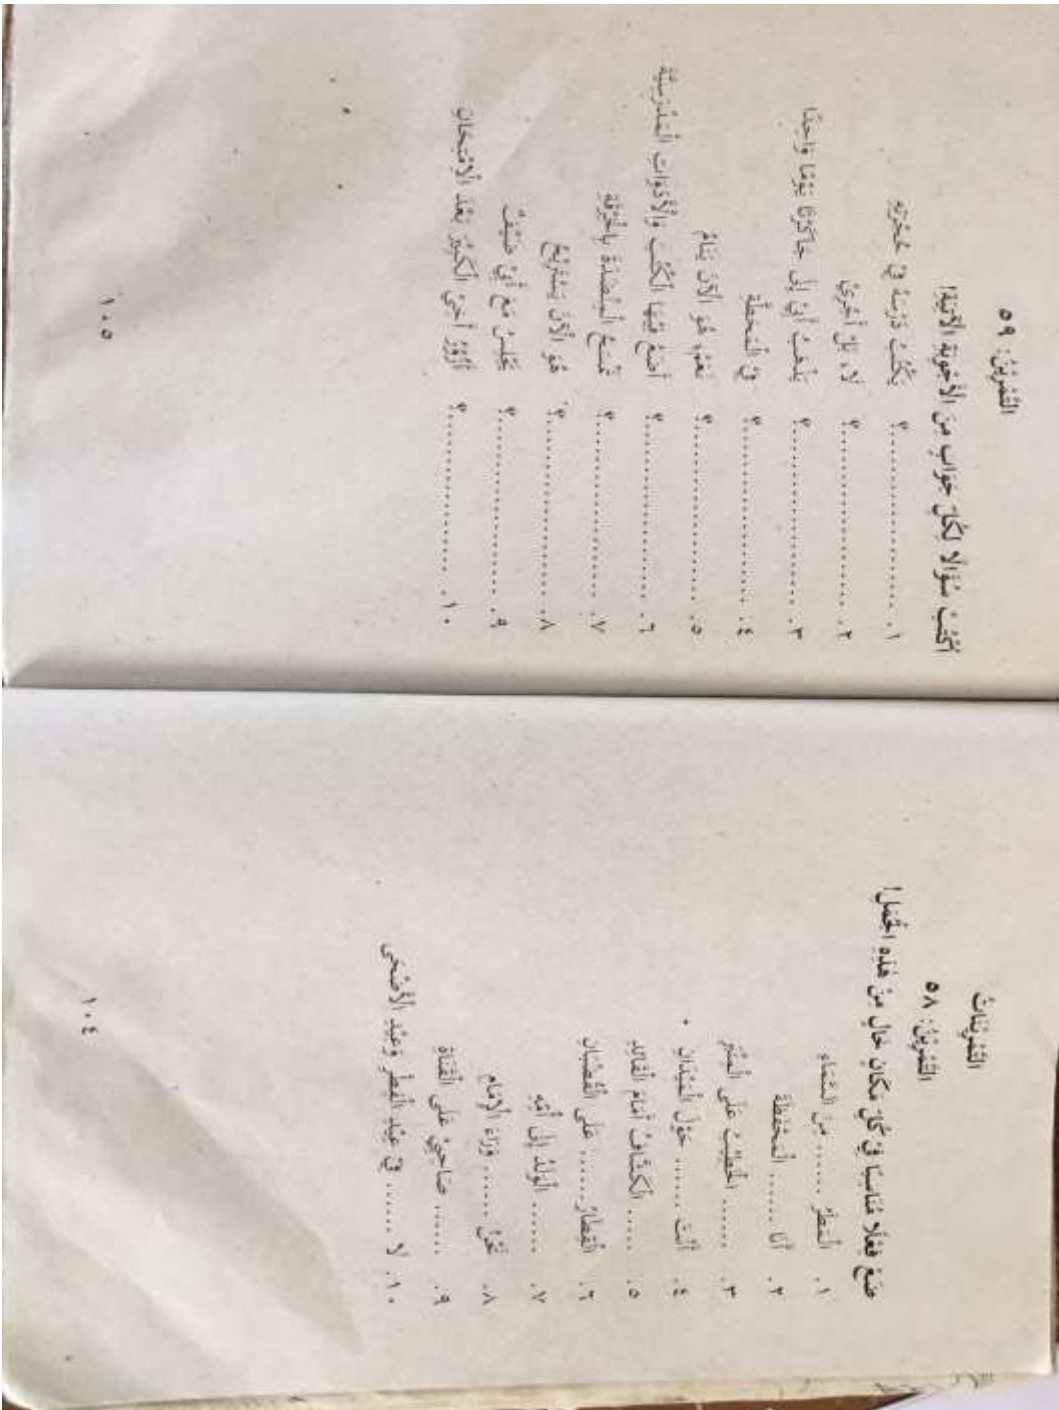 التَّمْرِيْنَاتُ
التَّمْرِيْنُ: ٥٨
ضَعْ فِعْلًا مُنَاسِبًا فِيْ كُلِّ مَكَانٍ خَالٍ مِنْ هٰذِهِ الْجُمَلِ!
١. الْمَطَرُ ...... مِنَ السَّمَاءِ
٢. أَنَا ...... الْمَحْفَظَةَ
٣. ...... الْخَطِيْبُ عَلَى الْمِنْبَرِ
٤. أَنْتَ ...... حَوْلَ الْمَيْدَانِ
٥. ...... الْكَشَّافُ أَمَامَ الْقَائِدِ
٦. الْقِطَارُ ...... عَلَى الْقُضْبَانِ
٧. ...... الْوَلَدُ إِلَى أُمِّهِ
٨. نَحْنُ ...... وَرَاءَ الْإِمَامِ
٩. ...... صَاحِبِيْ عَلَى الْقَنَاةِ
١٠. لَا ...... فِيْ عِيْدِ الْفِطْرِ وَعِيْدِ الْأَضْحَى
١٠٤
التَّمْرِيْنُ: ٥٩
اُكْتُبْ سُؤَالًا لِكُلِّ جَوَابٍ مِنَ الْأَجْوِبَةِ الْآتِيَةِ!
١. ..................؟ يَكْتُبُ دَرْسَهُ فِيْ حُجْرَتِهِ
٢. ..................؟ لَا، بَلْ أَجْرِيْ
٣. ..................؟ يَذْهَبُ أَبِيْ إِلَى جَاكَرْتَا يَوْمًا وَاحِدًا
٤. ..................؟ فِي الْمَحَطَّةِ
٥. ..................؟ نَعَمْ، هُوَ الْآنَ يَنَامُ
٦. ..................؟ أَضَعُ فِيْهَا الْكُتُبَ وَالْأَدَوَاتِ الْمَدْرَسِيَّةَ
٧. ..................؟ تَمْسَحُ الْمِنْضَدَةَ بِالْخِرْقَةِ
٨. ..................؟ هُوَ الْآنَ يَسْتَرِيْحُ
٩. ..................؟ يَجْلِسُ مَعَ أَبِيْ ضَيْفٌ
١٠. ..................؟ أَزُوْرُ أَخِي الْكَبِيْرَ بَعْدَ الْاِمْتِحَانِ
١٠٥